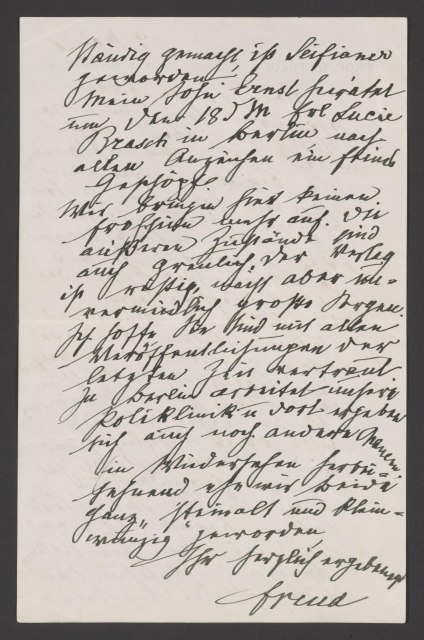 ständig gemacht, ist Seifianer
geworden
Mein Sohn Ernst heiratet
um den 18 d M Frl Lucie
Brasch in Berlin, nach
allen Anzeichen ein feines
Geschöpf.
Wir bringen hier keinen
Frohsinn mehr auf. Die
äußeren Zustände sind
auch greulich. Der Verlag
ist rüstig, macht aber un-
vermindlich große Sorgen.
Ich hoffe Sie sind mit allen
Veröffentlichungen der
letzten Zeit vertraut
In Berlin arbeitet unsere
Poliklinik u dort ergeben
sich auch noch andere
in Wiedersehen herbei-
sehnend ehe wir beide
ganz „steinalt und klein-
winzig“ geworden,
Ihr herzlich ergebener
Freud